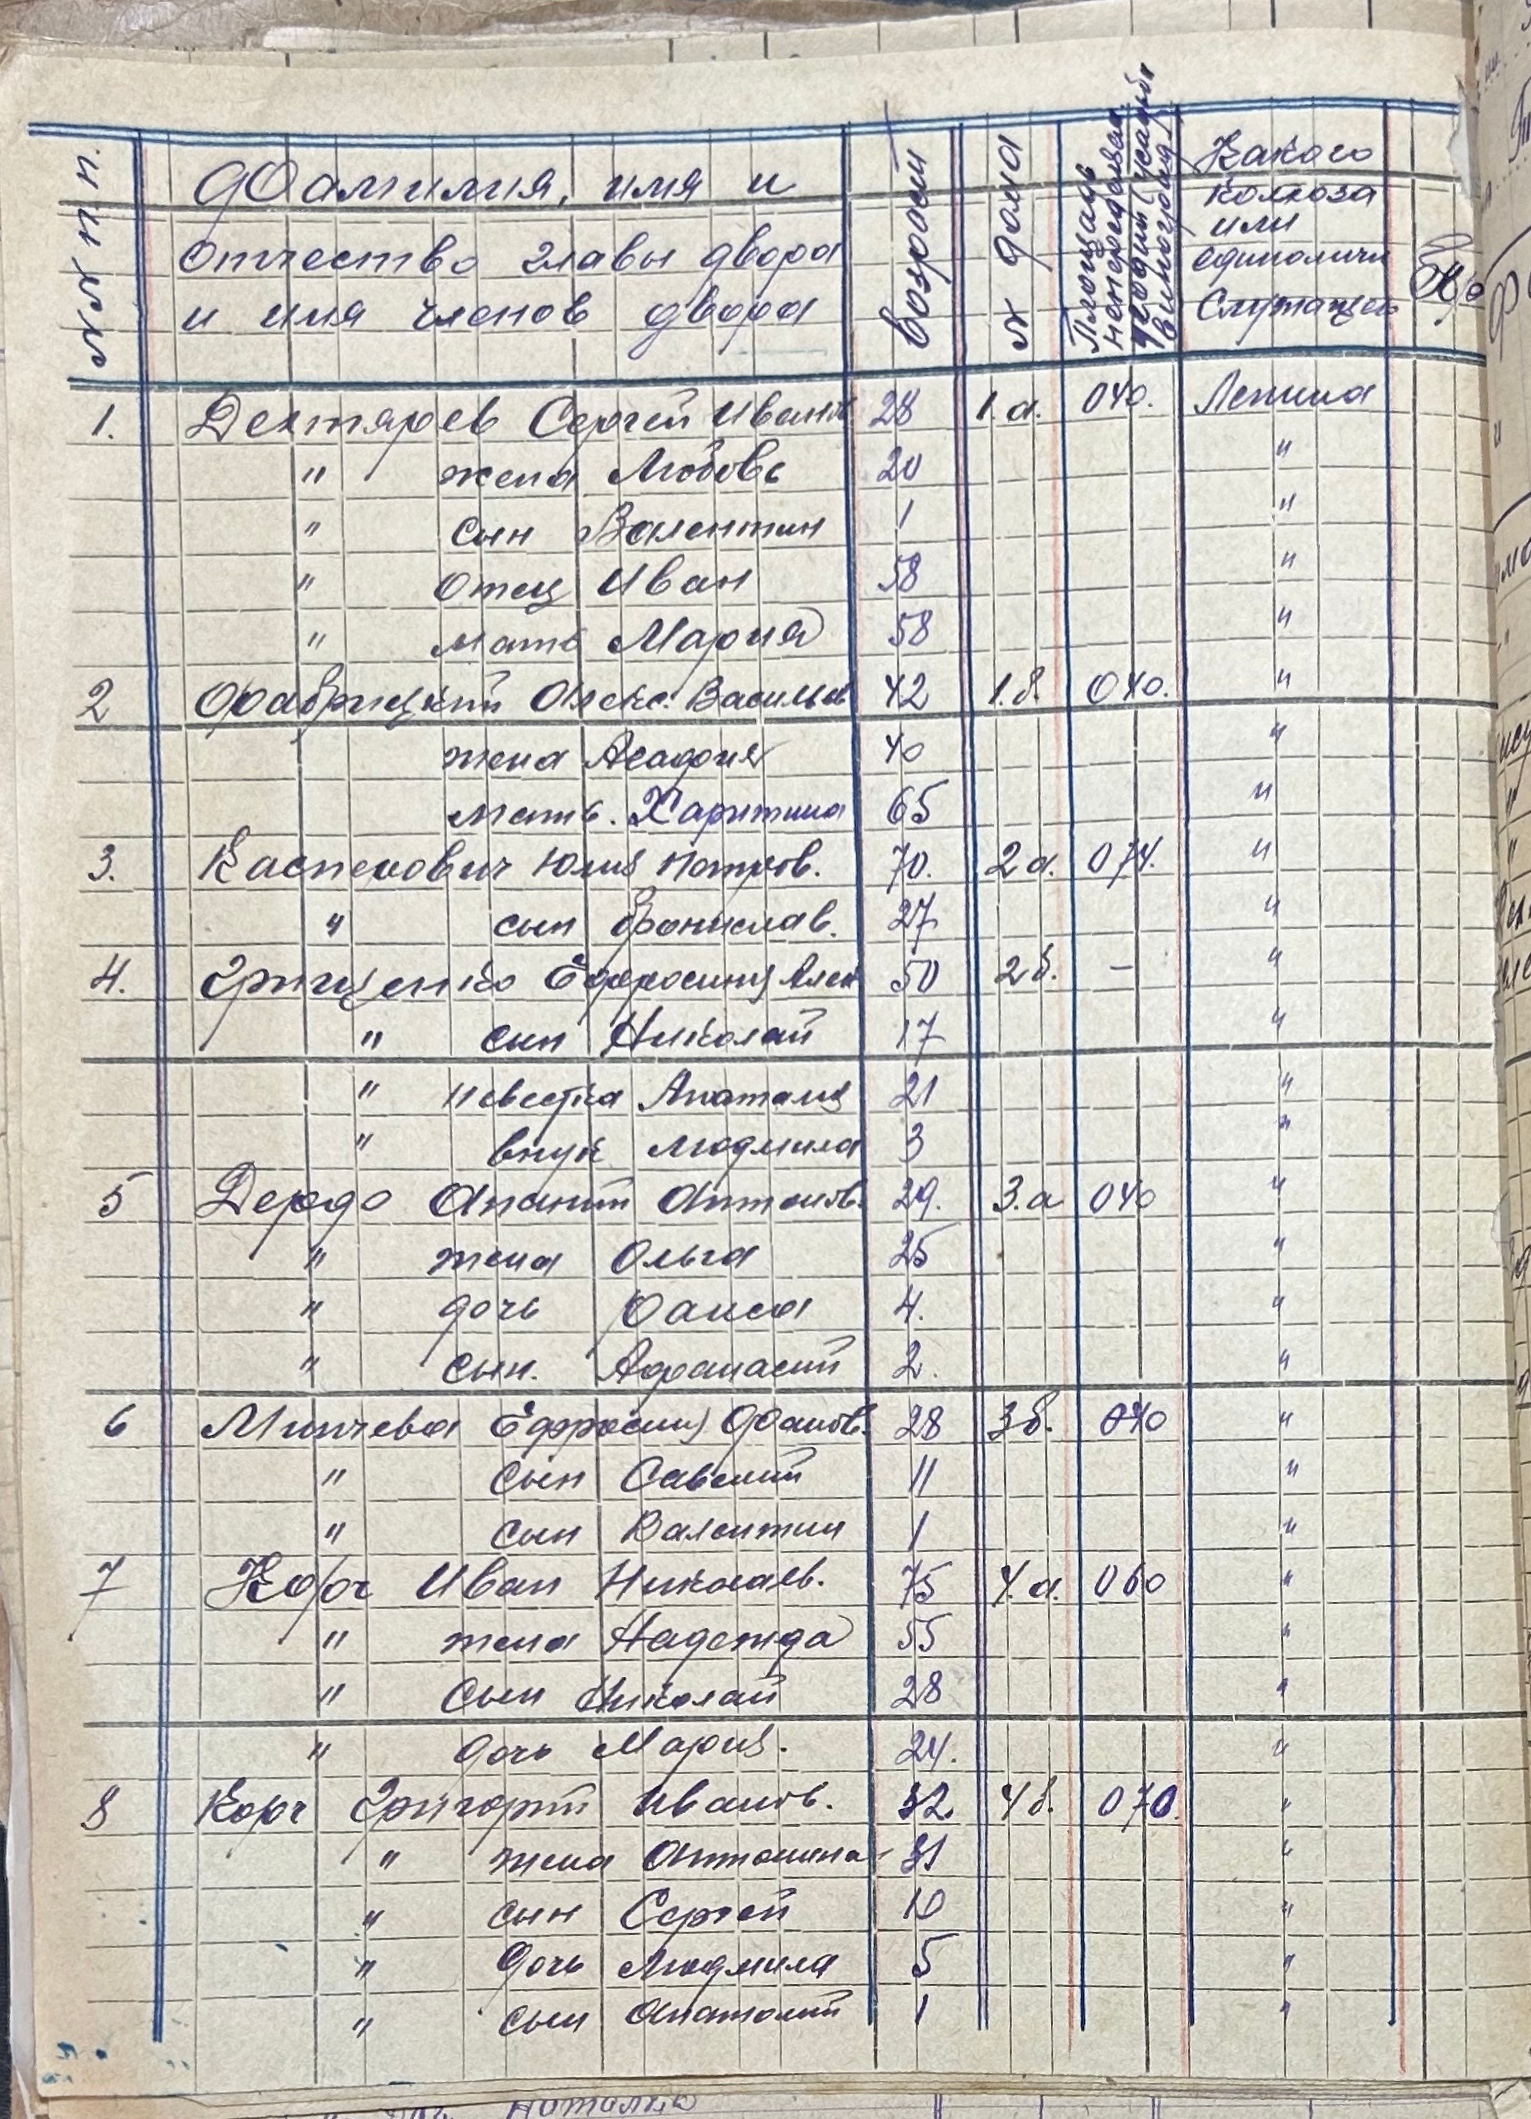 №№ п.п. Фамилия, имя и отчество главы двора и имя членов двора возраст № дома Площадь Какого колхоза или единоличн Служащего
1. Дехтярев Сергей Иванов 28 1.а. 040. Ленина
" жена Любовь 20 "
" сын Валентин 1 "
" отец Иван 58 "
" мать Мария 58 "
2 Фабрицкий Алекс. Васильев 42 1.б. 040. "
жена Агафия 40 "
мать. Харитина 65 "
3. Каспекович Юлия Петров. 70. 2а. 074. "
" сын Бронислав. 27 "
4. Грищенко Ефросиния Алек 50 2б. — "
" сын Николай 17 "
" невестка Анаталия 21 "
" внук Людмила 3 "
5 Дердо Ананий Антонов. 29. 3.а 040 "
" жена Ольга 25 "
" дочь Раиса 4. "
" сын. Афанасий 2. "
6 Минчева Ефросиния Фанов. 28 3б. 040 "
" сын Савелий 11 "
" сын Валентин 1 "
7 Корч Иван Николаев. 75 4.а. 060 "
" жена Надежда 55 "
" сын Николай 28 "
" дочь Мария. 24. "
8 Корч Григорий Иванов. 32 4б. 070. "
" жена Антонина 31 "
" сын Сергей 10 "
" дочь Людмила 5 "
" сын Анатолий 1 "